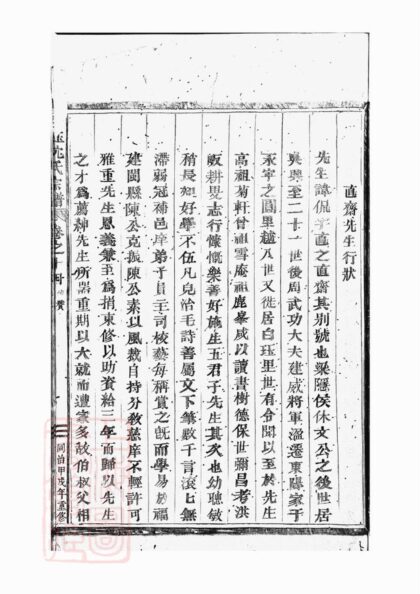 直齋先生行狀
先生諱侃字直之直齋其別號也梁隱侯休文公之後世居
吳興至二十一世後周武功大夫建威將軍溢遷東陽家于
永寧之圓里越八世又徙居白珏里世有分聞以至於先生
高祖菊軒曾祖雪庵祖 咸以讀書樹德保世彌昌考洪
畈耕叟志行慷慨樂善好施生五君子先生其次也幼聰敏
稍長知好學不伍凡兒治毛詩善屬文下筆數千言滾匕無
滯弱冠補邑庠弟子員三司校藝每稱賞之旣而學易於福
建閩縣陳公克振陳公素以風教自持分敎慈庠不輕許可
雅重先生恩義兼至爲捐束修以助資給三年而歸以先生
之才爲薦紳先生所器重期以大就而遭家多故伯叔父相
沈氏宗譜
卷之十
贊
同治甲戌年重修